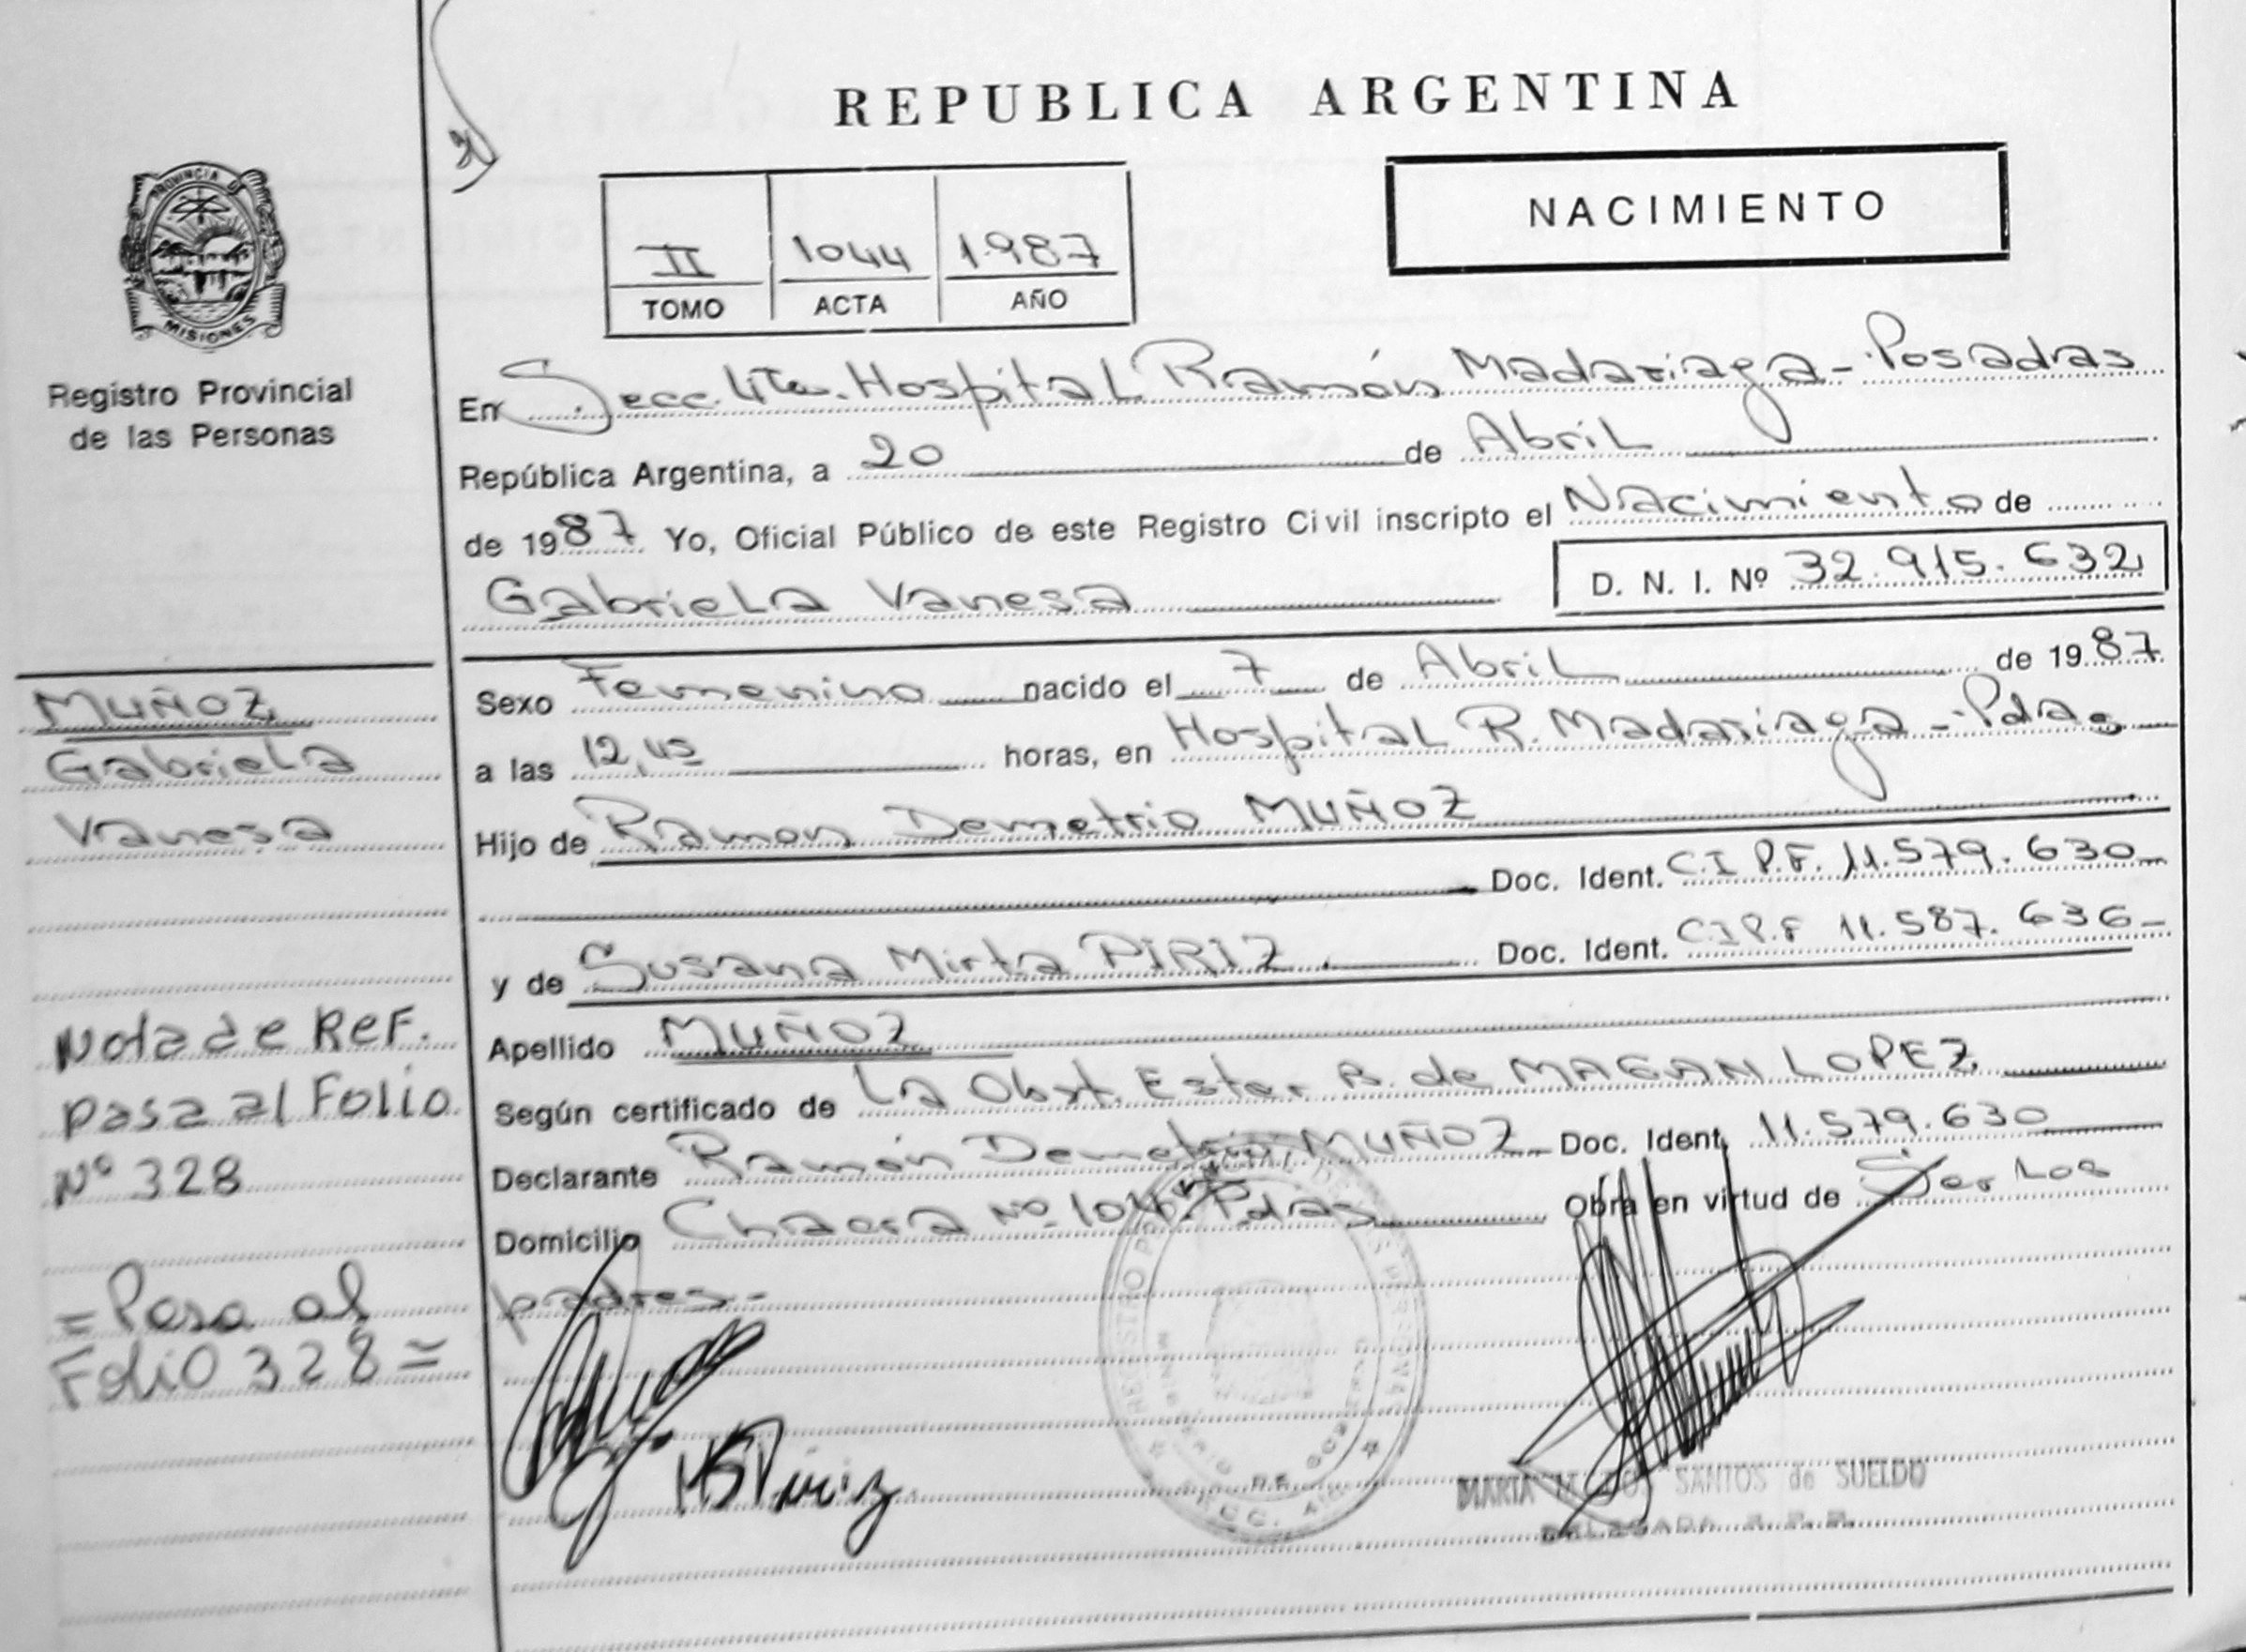 REPUBLICA ARGENTINA
NACIMIENTO
II 1044 1.987
TOMO ACTA AÑO
PROVINCIA DE
MISIONES
Registro Provincial
de las Personas
En Secc. 4ta. Hospital Ramón Madariaga - Posadas
República Argentina, a 20 de Abril
de 1987 Yo, Oficial Público de este Registro Civil inscripto el Nacimiento de
Gabriela Vanesa
D. N. I. Nº 32.915.632
Sexo Femenino nacido el 7 de Abril de 1987
a las 12,45 horas, en Hospital R. Madariaga - Pdas
Hijo de Ramon Demetrio MUÑOZ
Doc. Ident. C.I P.F. 11.579.630
y de Susana Mirta PIRIZ. Doc. Ident. C.I P.F 11.587.636
Apellido MUÑOZ
Según certificado de La Obst. Ester B. de MAGAN LOPEZ
Declarante Ramón Demetrio MUÑOZ Doc. Ident. 11.579.630
Domicilio Chacra Nº 104 Pdas Obra en virtud de Ser Los
padres.-
MUÑOZ
Gabriela
Vanesa
Nota de Ref.
pasa al Folio
Nº 328
= Pasa al
Folio 328 =
Piriz
REGISTRO DE LAS PERSONAS
MINISTERIO DE GOBIERNO
MARIA SANTOS de SUELDO
DELEGADA R.P.P.